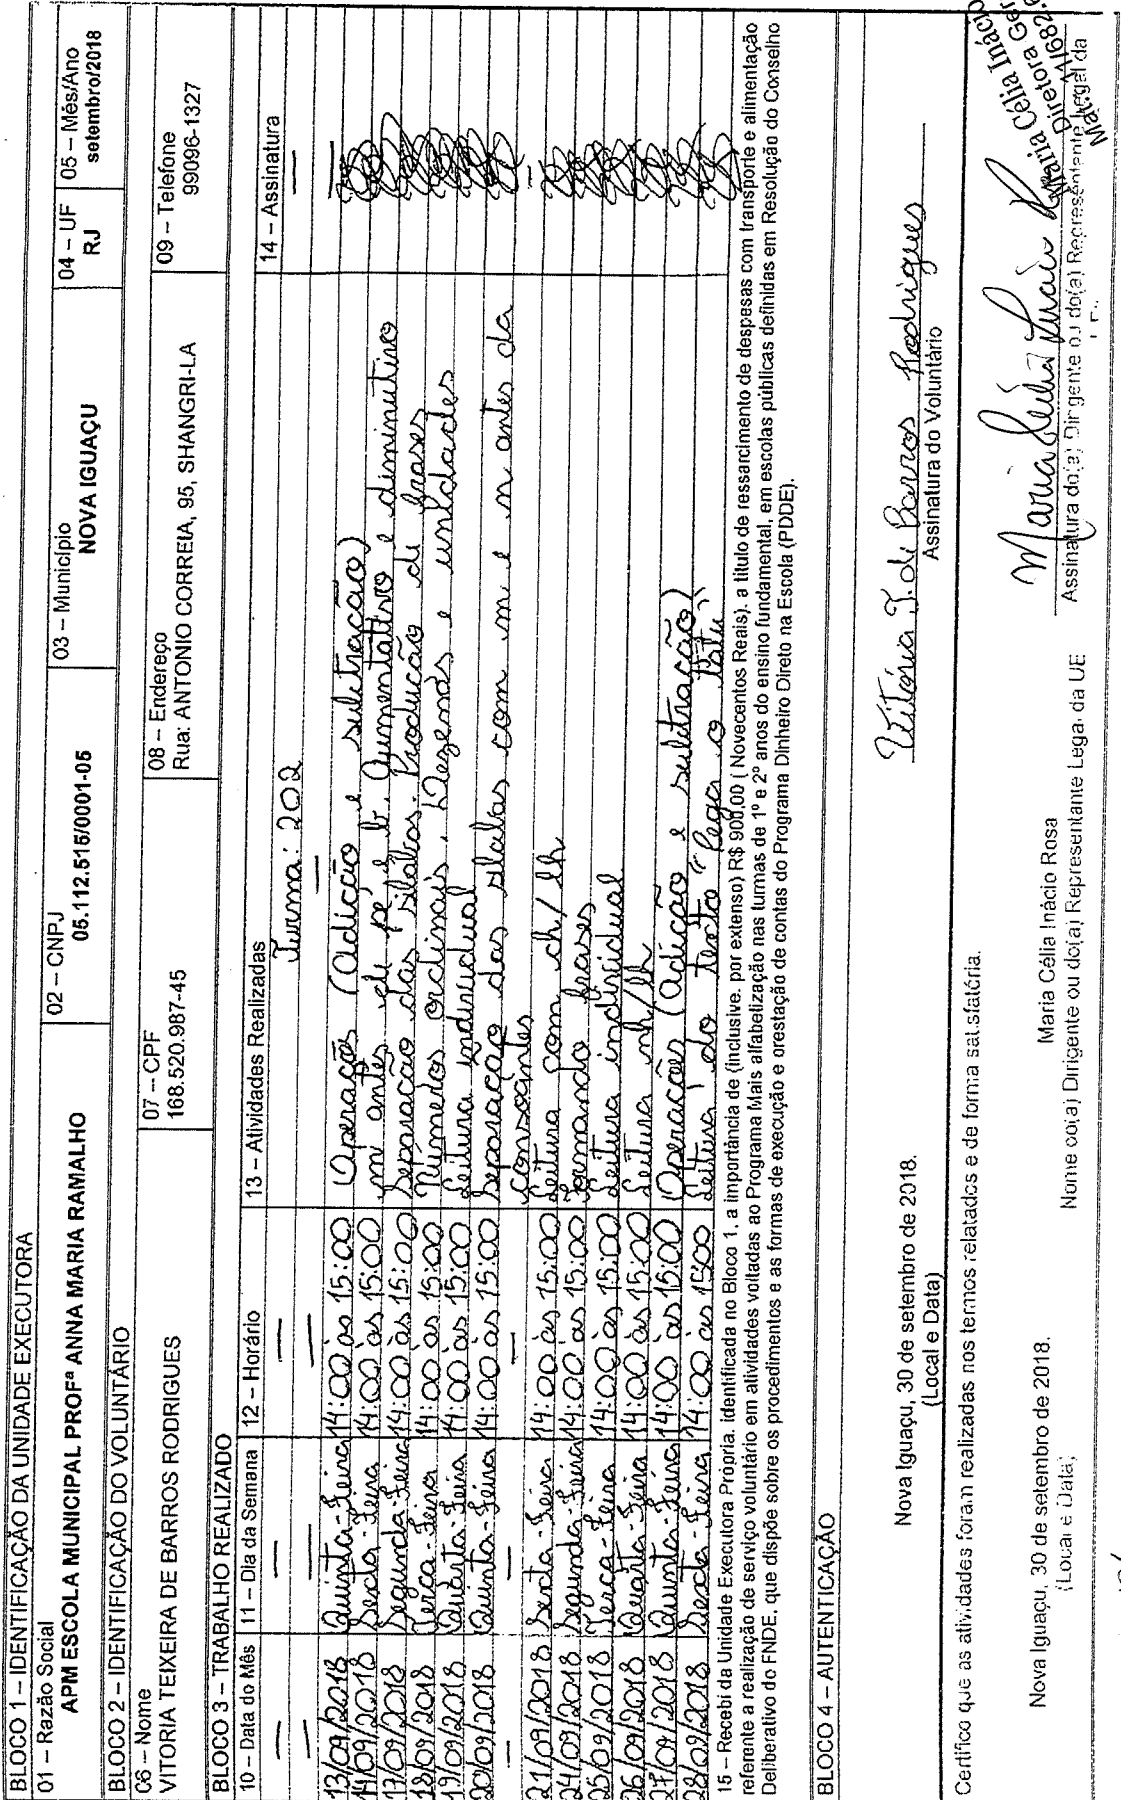 BLOCO 1 – IDENTIFICAÇÃO DA UNIDADE EXECUTORA
01 – Razão Social
APM ESCOLA MUNICIPAL PROFª ANNA MARIA RAMALHO
02 – CNPJ
05.112.515/0001-05
03 – Município
NOVA IGUAÇU
04 – UF
RJ
05 – Mês/Ano
setembro/2018
BLOCO 2 – IDENTIFICAÇÃO DO VOLUNTÁRIO
06 – Nome
VITORIA TEIXEIRA DE BARROS RODRIGUES
07 – CPF
168.520.987-45
08 – Endereço
Rua: ANTONIO CORREIA, 95, SHANGRI-LA
09 – Telefone
99096-1327
BLOCO 3 – TRABALHO REALIZADO
10 – Data do Mês 11 – Dia da Semana 12 – Horário 13 – Atividades Realizadas 14 – Assinatura
Turma: 202
13/09/2018 Quinta-Feira 14:00 às 15:00 Operações (Adicção e subtracão)
14/09/2018 Sexta-Feira 14:00 às 15:00 m antes de p e b. Aumentativo e diminutivo
17/09/2018 Segunda-Feira 14:00 às 15:00 Separacão das silabas. Producão de frases
18/09/2018 Terca-Feira 14:00 às 15:00 Números ordinais. Dezenas e unidades
19/09/2018 Quarta-Feira 14:00 às 15:00 Leitura individual
20/09/2018 Quinta-Feira 14:00 às 15:00 Separação das silabas com m e n antes da
consoantes
21/09/2018 Sexta-Feira 14:00 às 15:00 Leitura com ch/lh
24/09/2018 Segunda-Feira 14:00 às 15:00 Formando frases
25/09/2018 Terca-Feira 14:00 às 15:00 Leitura individual
26/09/2018 Quarta-Feira 14:00 às 15:00 Leitura nh/lh
27/09/2018 Quinta-Feira 14:00 às 15:00 Operacões (Adicção e subtracão)
28/09/2018 Sexta-Feira 14:00 às 15:00 Leitura do texto "Pega o Tatu"
15 – Recebi da Unidade Executora Própria, identificada no Bloco 1, a importância de (inclusive, por extenso) R$ 900,00 ( Novecentos Reais), a título de ressarcimento de despesas com transporte e alimentação
referente a realização de serviço voluntário em atividades voltadas ao Programa Mais alfabetização nas turmas de 1º e 2º anos do ensino fundamental, em escolas públicas definidas em Resolução do Conselho
Deliberativo do FNDE, que dispõe sobre os procedimentos e as formas de execução e prestação de contas do Programa Dinheiro Direto na Escola (PDDE).
BLOCO 4 – AUTENTICAÇÃO
Nova Iguaçu, 30 de setembro de 2018.
(Local e Data)
Vitória T. de Barros Rodrigues
Assinatura do Voluntário
Certifico que as atividades foram realizadas nos termos relatados e de forma satisfatória.
Nova Iguaçu, 30 de setembro de 2018.
(Local e Data)
Maria Célia Inácio Rosa
Nome do(a) Dirigente ou do(a) Representante Legal da UE
Assinatura do(a) Dirigente ou do(a) Representante Legal da
Maria Célia Inácio
Diretora Ger
Mat.: 11/682.